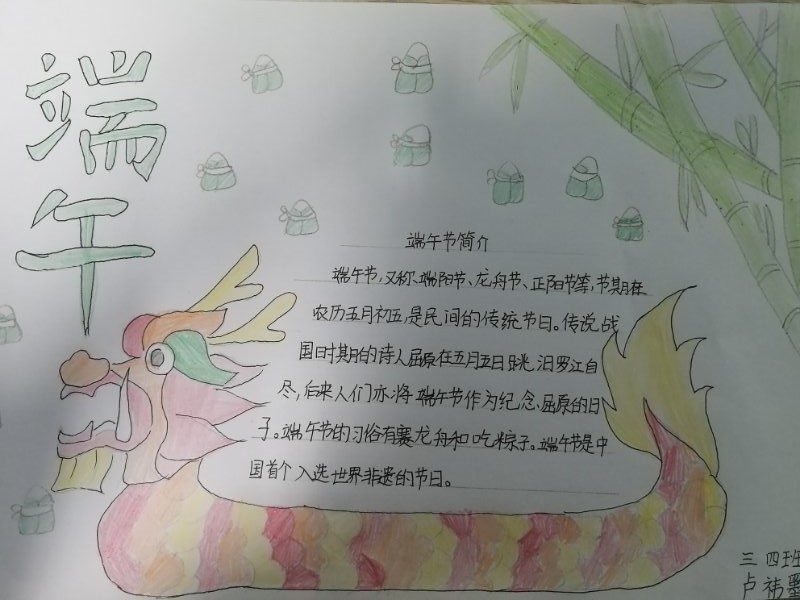 端午
端午节简介
端午节,又称端阳节、龙舟节、正阳节等,节期在
农历五月初五,是民间的传统节日。传说战
国时期的诗人屈原在五月五日跳汨罗江自
尽,后来人们亦将端午节作为纪念屈原的日
子。端午节的习俗有赛龙舟和吃粽子。端午节是中
国首个入选世界非遗的节日。
三 四班
卢祎墨